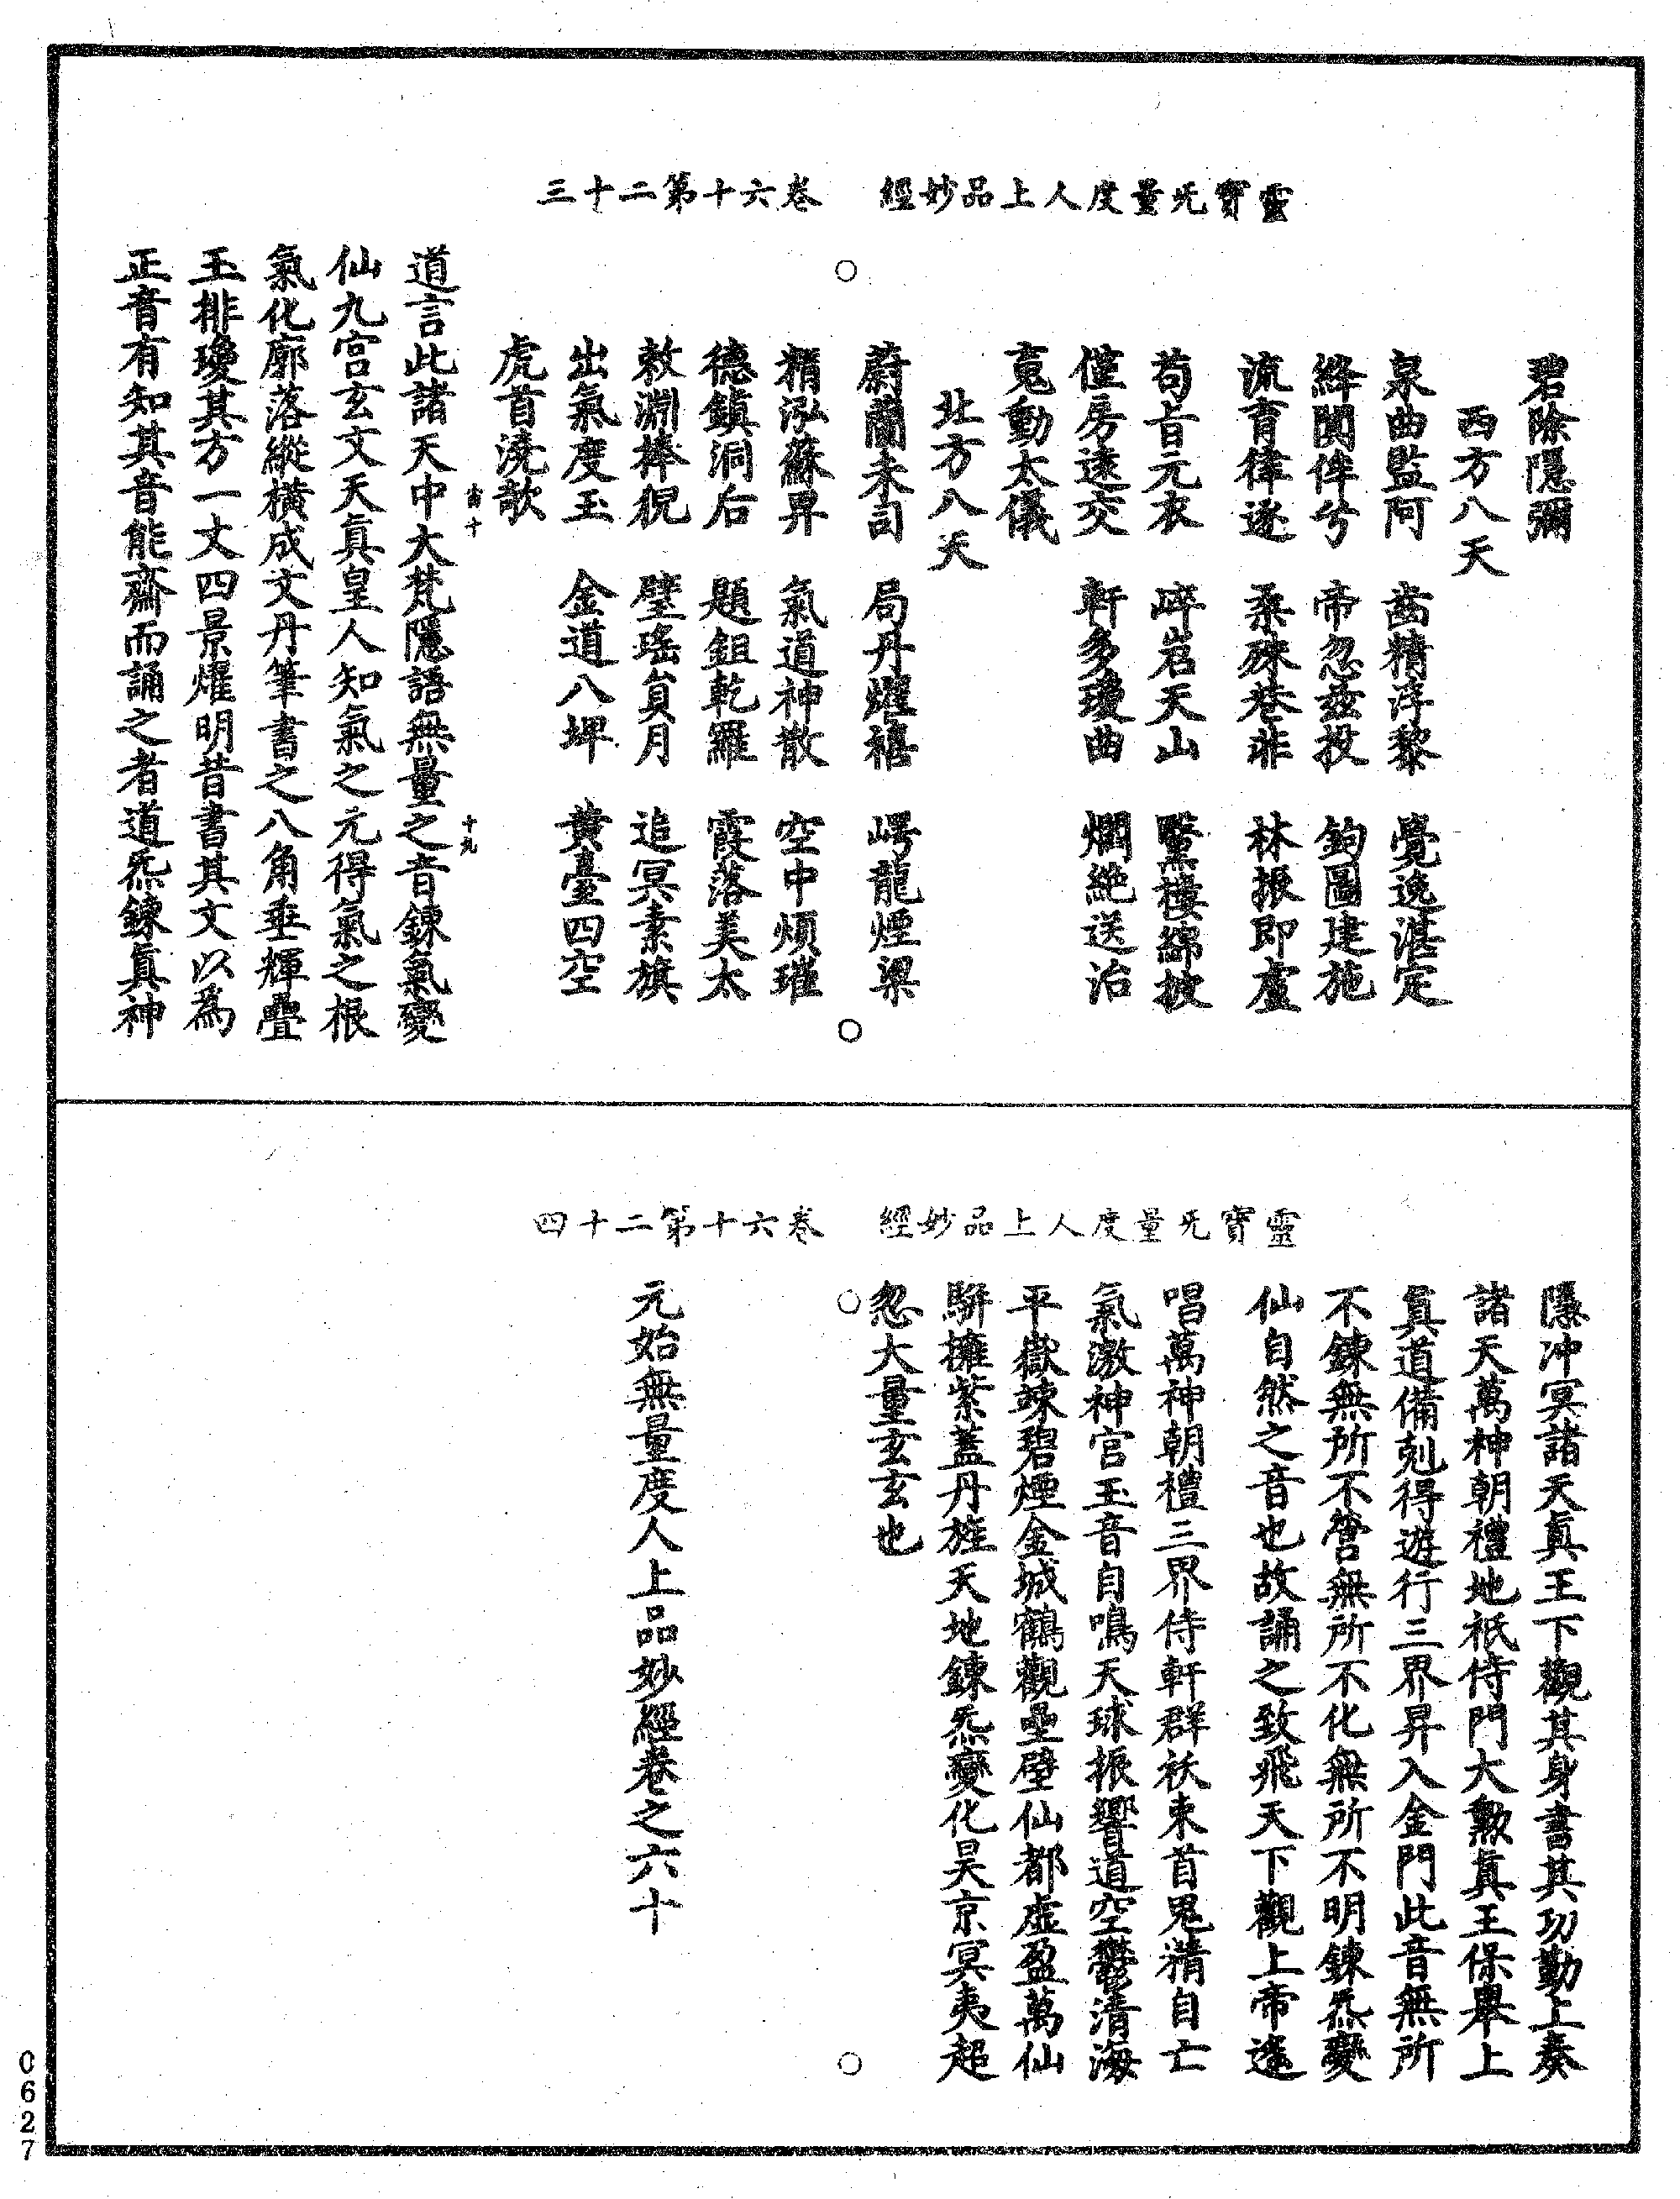 靈寶无量度人上品妙經　卷六十第二十三
碧除隱彌
西方八天
泉曲監阿　茜精浮黎　覺逸湛定
絳闕侔兮　帝忽茲投　鉤圖建施
流育律遂　柔殊巷非　林振即盧
苟旨元衣　崪岩天山　翳樓綿披
僮房遠交　軒多瓊曲　爛絕送治
寬動太儀
北方八天
蔚蘭未司　局丹燿禧　崿龍煙梁
精泓蘇昇　氣道神散　空中煩璀
德鎮洞后　題鉏乾羅　霞落美太
敕淵棒猊　壁瑤負月　追冥素旗
出氣度玉　金道八埤　黃臺四空
虎首澆歆
道言此諸天中大梵隱語無量之音鍊氣變
十九
仙九宮玄文天真皇人知氣之元得氣之根
氣化廓落縱橫成文丹筆書之八角垂輝疊
玉排瓊其方一丈四景燿明昔書其文以為
正音有知其音能齋而誦之者道炁鍊真神
靈寶无量度人上品妙經　卷六十第二十四
隱冲冥諸天真王下觀其身書其功勤上奏
諸天萬神朝禮地祇侍門大勲真王保舉上
真道備剋得遊行三界昇入金門此音無所
不鍊無所不營無所不化無所不明鍊炁變
仙自然之音也故誦之致飛天下觀上帝遙
唱萬神朝禮三界侍軒群祅束首鬼精自亡
氣激神官玉音自鳴天球振響道空鬱清海
平嶽竦碧煙金城鶴觀壘壁仙都虛盈萬仙
駢擁紫蓋丹旌天地鍊炁變化昊京冥夷超
忽大量玄玄也
元始無量度人上品妙經卷之六十
0627